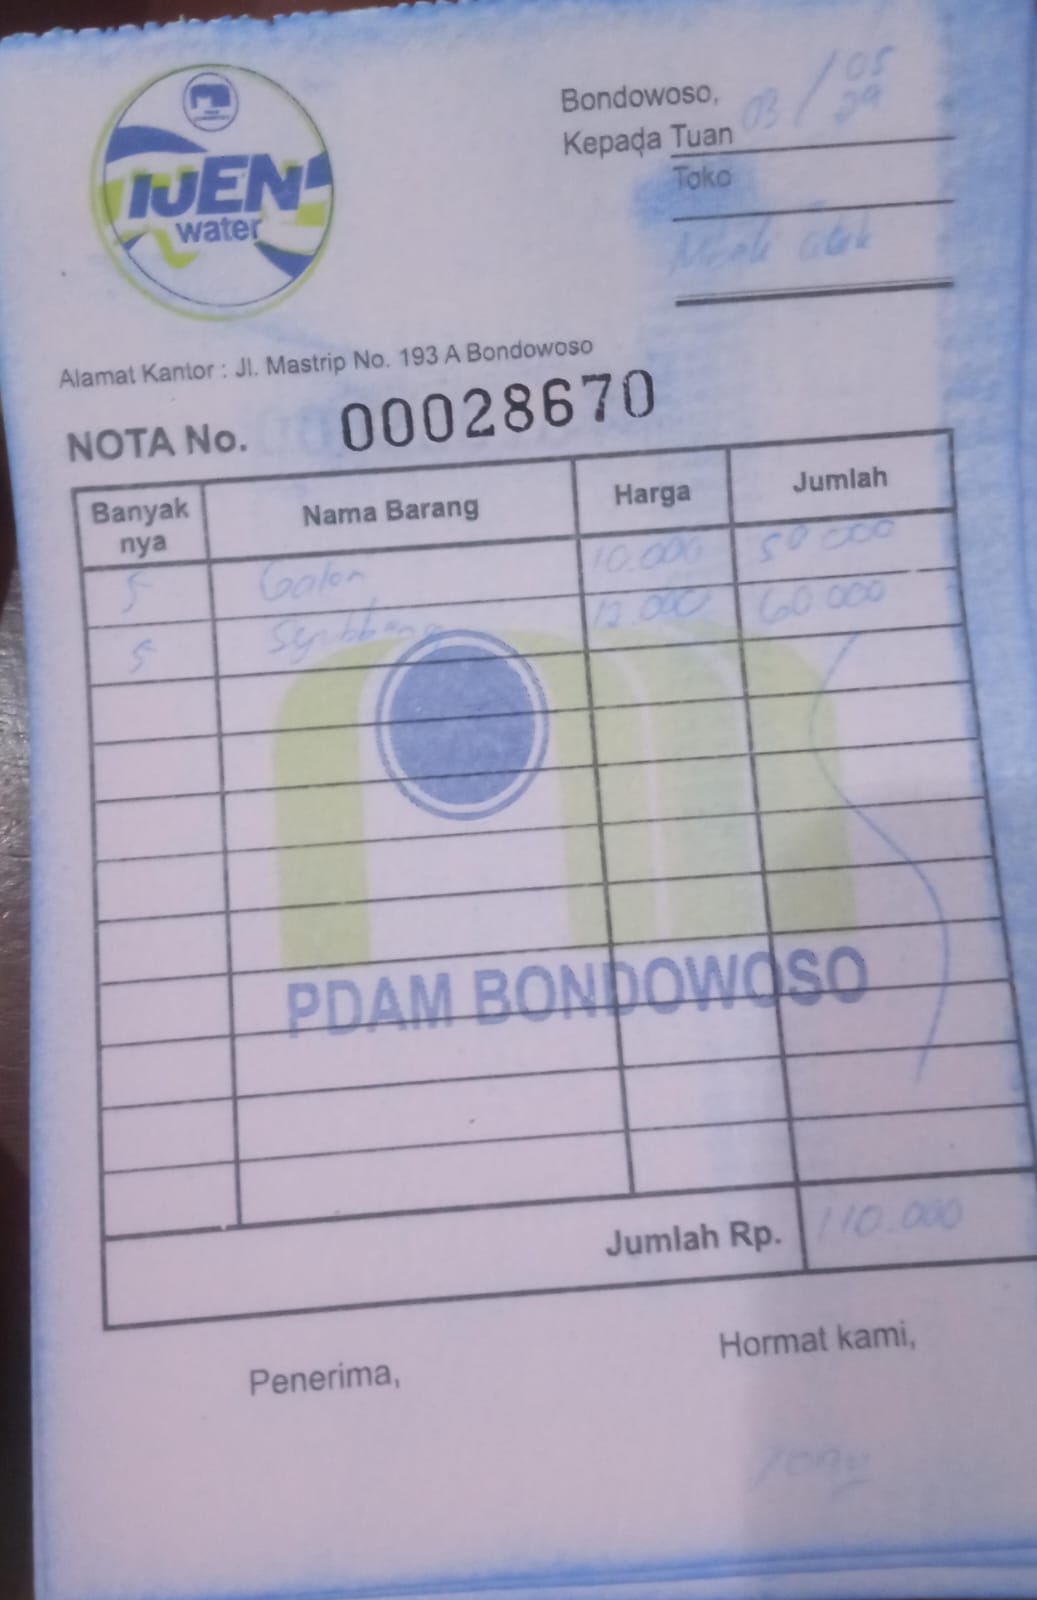 IJEN
water
Bondowoso, 03/05
Kepada Tuan
Toko
Alamat Kantor : Jl. Mastrip No. 193 A Bondowoso
NOTA No. 00028670
Banyak nya Nama Barang Harga Jumlah
5 Galon 10.000 50 000
5 12.000 60 000
PDAM BONDOWOSO
Jumlah Rp. 110.000
Penerima, Hormat kami,